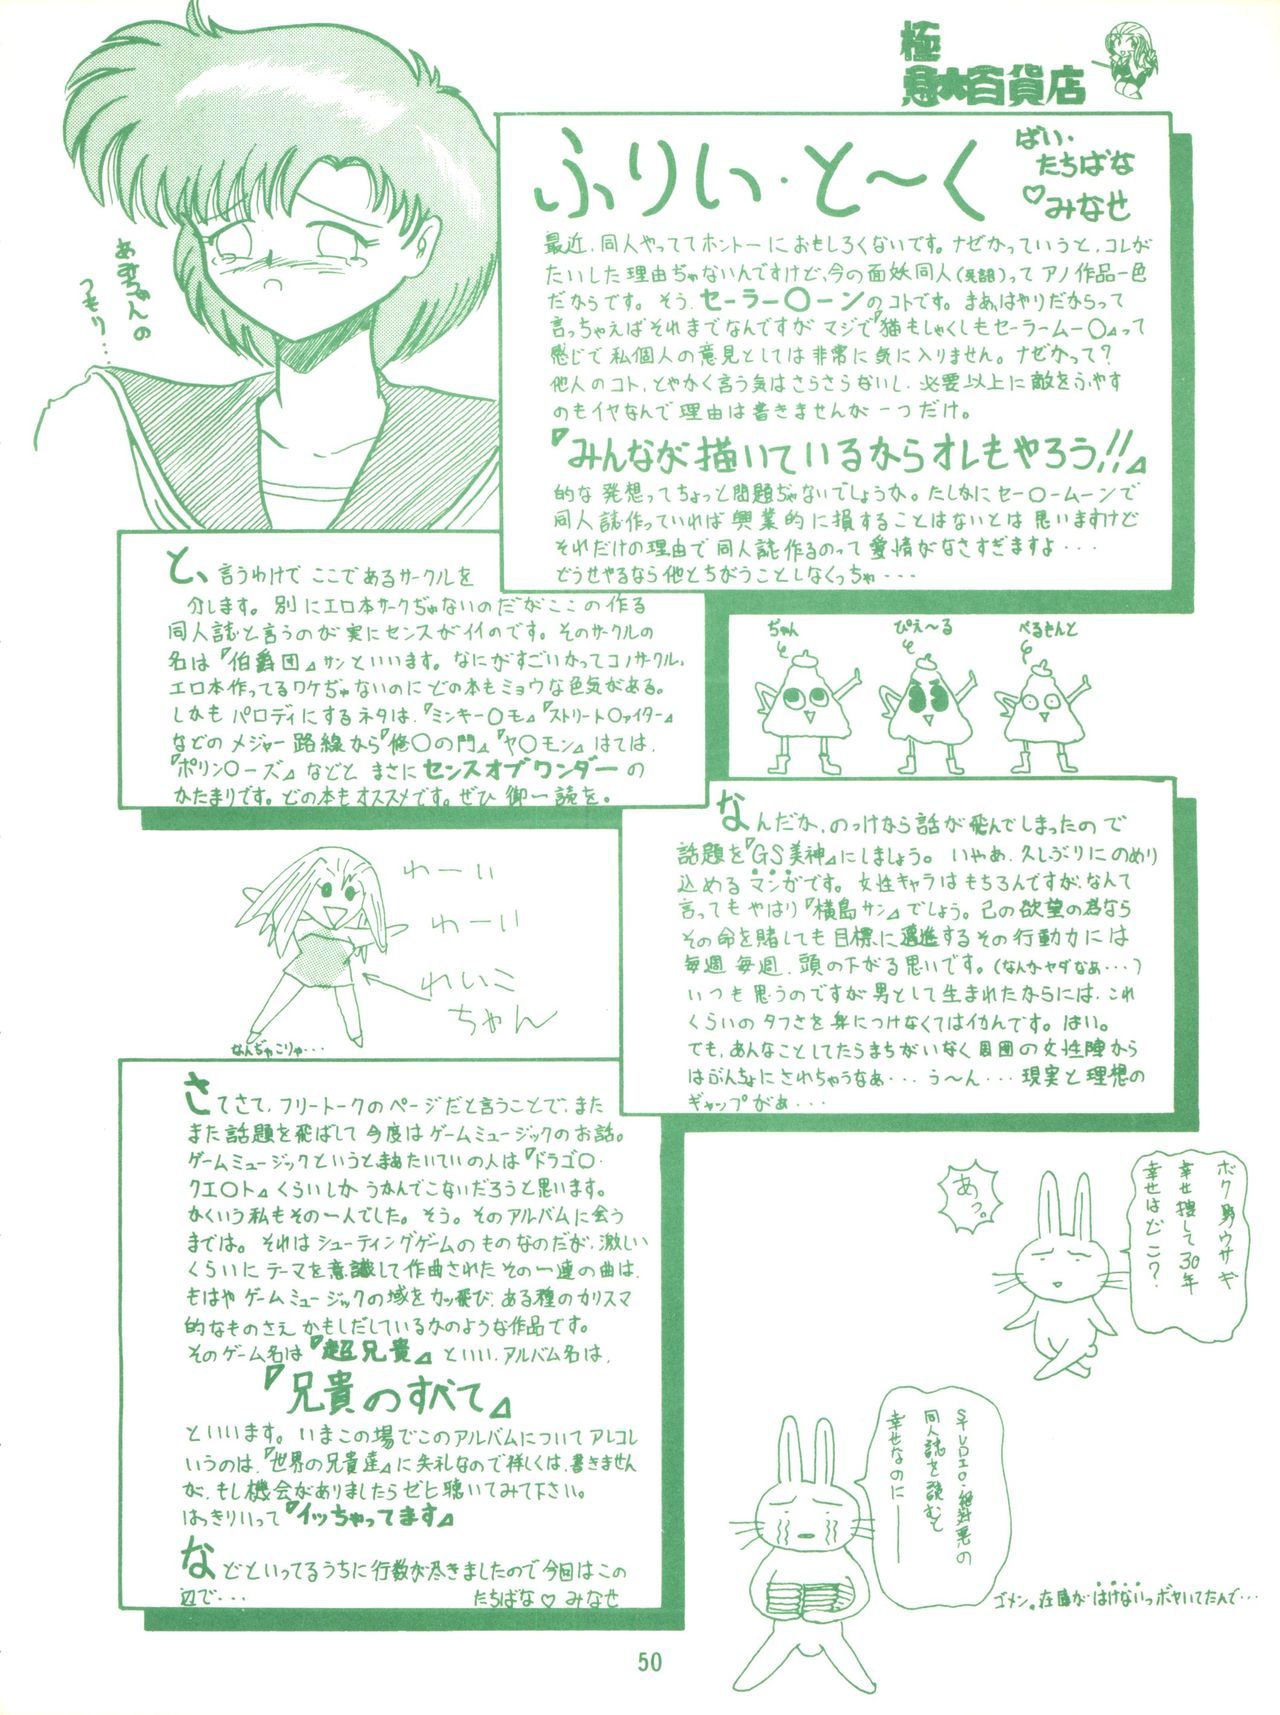 極
悪大百貨店
ふりい・と〜く
ばい・
たちばな
♡みなせ
最近、同人やっててホントーにおもしろくないです。ナゼかっていうと、コレが
たいした理由ぢゃないんですけど、今の面妖同人(発語)ってアノ作品一色
だからです。そう、セーラー〇ーンのコトです。まぁはやりだからって
言っちゃえばそれまでなんですがマジで『猫もしゃくしもセーラームー〇』って
感じで私個人の意見としては非常に気に入りません。ナゼかって?
他人のコト、とやかく言う気はさらさらないし、必要以上に敵をふやす
のもイヤなんで理由は書きませんが一つだけ。
『みんなが描いているからオレもやろう!!』
的な発想ってちょっと問題ぢゃないでしょうか。たしかにセー〇ームーンで
同人誌作っていれば興業的に損することはないとは思いますけど
それだけの理由で同人誌作るのって愛情がなさすぎますよ・・・
どうせやるなら他とちがうことしなくっちゃ・・・
あみちゃんの
つもり・・・
と、言うわけでここであるサークルを
介します。別にエロ本サークぢゃないのだがここの作る
同人誌と言うのが実にセンスがイイのです。そのサークルの
名は『伯爵団』サンといいます。なにがすごいかってコノサークル、
エロ本作ってるワケぢゃないのにどの本もミョウな色気がある。
しかもパロディにするネタは、『ミンキー〇モ』『ストリート〇ァイター』
などのメジャー路線から『修〇の門』『ヤ〇モン』はては、
『ポリン〇ーズ』などとまさにセンスオブワンダーの
かたまりです。どの本もオススメです。ぜひ御一読を。
ぢゃん
ぴえ〜る
べるもんと
なんだか、のっけから話が飛んでしまったので
話題を『GS美神』にしましょう。いやあ、久しぶりにのめり
込めるマンガです。女性キャラはもちろんですが、なんて
言ってもやはり『横島サン』でしょう。己の欲望の為なら
その命を賭しても目標に邁進するその行動力には
毎週毎週、頭の下がる思いです。(なんかヤダなぁ・・・)
いつも思うのですが男として生まれたからには、これ
くらいのタフさを身につけなくてはイカんです。はい。
でも、あんなことしてたらまちがいなく周囲の女性陣から
はぶんちょにされちゃうなぁ・・・う〜ん・・・現実と理想の
ギャップがぁ・・・
わーい
わーい
れいこ
ちゃん
なんぢゃこりゃ・・・
さてさて、フリートークのページだと言うことで、また
また話題を飛ばして今度はゲームミュージックのお話。
ゲームミュージックというとまぁたいていの人は『ドラゴ〇・
クエ〇ト』くらいしかうかんでこないだろうと思います。
かくいう私もその一人でした。そう。そのアルバムに会う
までは。それはシューティングゲームのものなのだが、激しい
くらいにテーマを意識して作曲されたその一連の曲は、
もはやゲームミュージックの域をカッ飛び、ある種のカリスマ
的なものさえかもしだしているかのような作品です。
そのゲーム名は『超兄貴』といい、アルバム名は、
『兄貴のすべて』
といいます。いまこの場でこのアルバムについてアレコレ
いうのは、『世界の兄貴達』に失礼なので詳しくは、書きません
が、もし機会がありましたらゼヒ聴いてみて下さい。
はっきりいって『イッちゃってます』
などといってるうちに行数が尽きましたので今回はこの
辺で・・・ たちばな♡みなせ
ボク野ウサギ
幸せ捜して30年
幸せはどこ?
あっ。
STUDIO・絶対悪の
同人誌を読むと
幸せなのに――
ゴメン。在庫がはけないっボヤいてたんで・・・
50